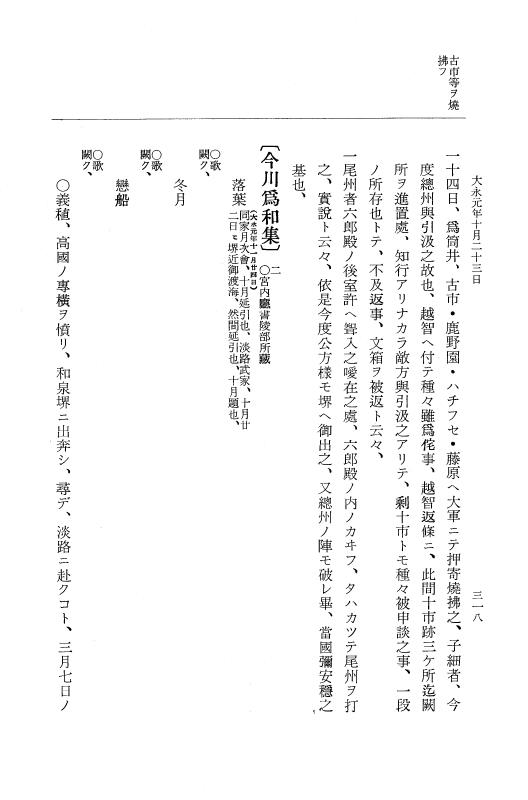 大永元年十月二十三日
三一八
古市等ヲ燒
拂フ
一十四日、爲筒井、古市・鹿野園・ハチフセ・藤原ヘ大軍ニテ押寄燒拂之、子細者、今
度總州與引汲之故也、越智ヘ付テ種々雖爲侘事、越智返條ニ、此間十市跡三ケ所迄闕
所ヲ進置處、知行アリナカラ敵方與引汲之アリテ、剩十市トモ種々被申談之事、一段
ノ所存也トテ、不及返事、文箱ヲ被返ト云々、
一尾州者六郎殿ノ後室許ヘ聟入之噯在之處、六郎殿ノ内ノカヰフ、タハカツテ尾州ヲ打
之、實說ト云々、依是今度公方樣モ堺ヘ御出之、又總州ノ陣モ破レ畢、當國彌安穩之
基也、
〔今川爲和集〕二〇宮内廳書陵部所藏
(大永元年十一月廿四日)
同家月次會、十月延引也、淡路武家、十月廿
二日ニ堺近御渡海、然間延引也、十月題也、
落葉
〇歌
闕ク、
冬月
〇歌
闕ク、
戀船
〇歌
闕ク、
〇義稙、高國ノ專橫ヲ憤リ、和泉堺ニ出奔シ、尋デ、淡路ニ赴クコト、三月七日ノ